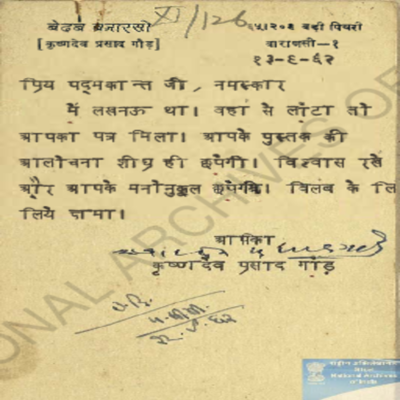 बेढब बनारसी XI/126 ६५।२०३ बड़ी पियरी
[कृष्णदेव प्रसाद गौड़] वाराणसी-१
१३-९-६२
प्रिय पद्मकान्त जी, नमस्कार
में लखनऊ था। वहां से लौटा तो
आपका पत्र मिला। आपके पुस्तक की
आलोचना शीघ्र ही छपेगी। विश्वास रखें
और आपके मनोनुकूल छपेगी। विलंब के लि
लिये क्षमा।
आपका
कृष्णदेव प्रसाद गौड़
NATIONAL ARCHIVES OF